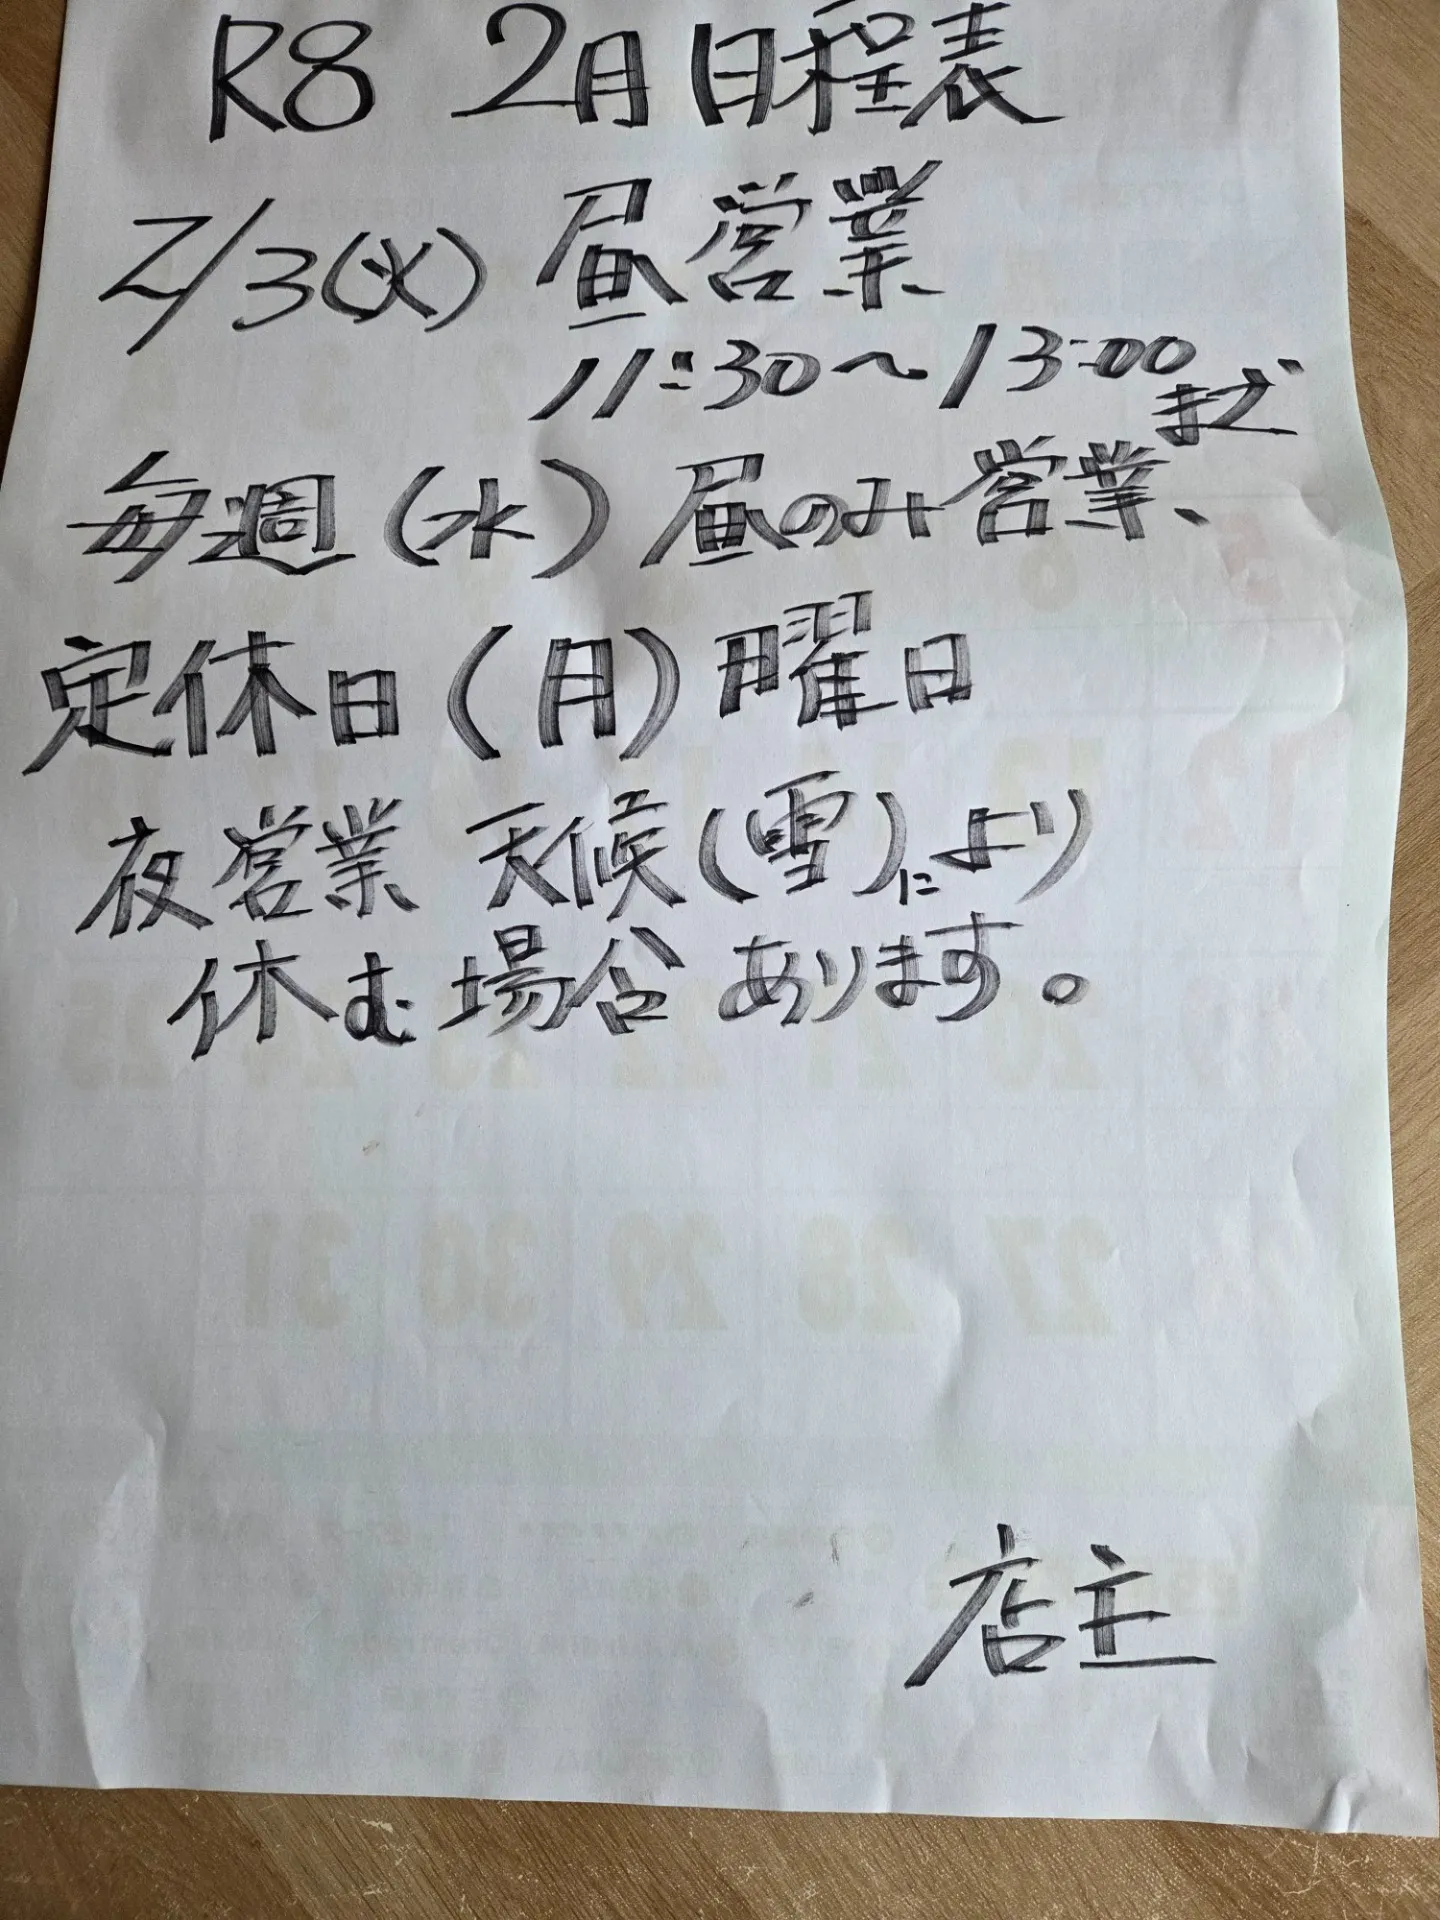 R8 2月日程表
2/3(火) 昼営業
11:30〜13:00
まで
毎週(水)昼のみ営業、
定休日(月)曜日
夜営業 天候(雪)により
休む場合あります。
27 28 29 30 31
店主